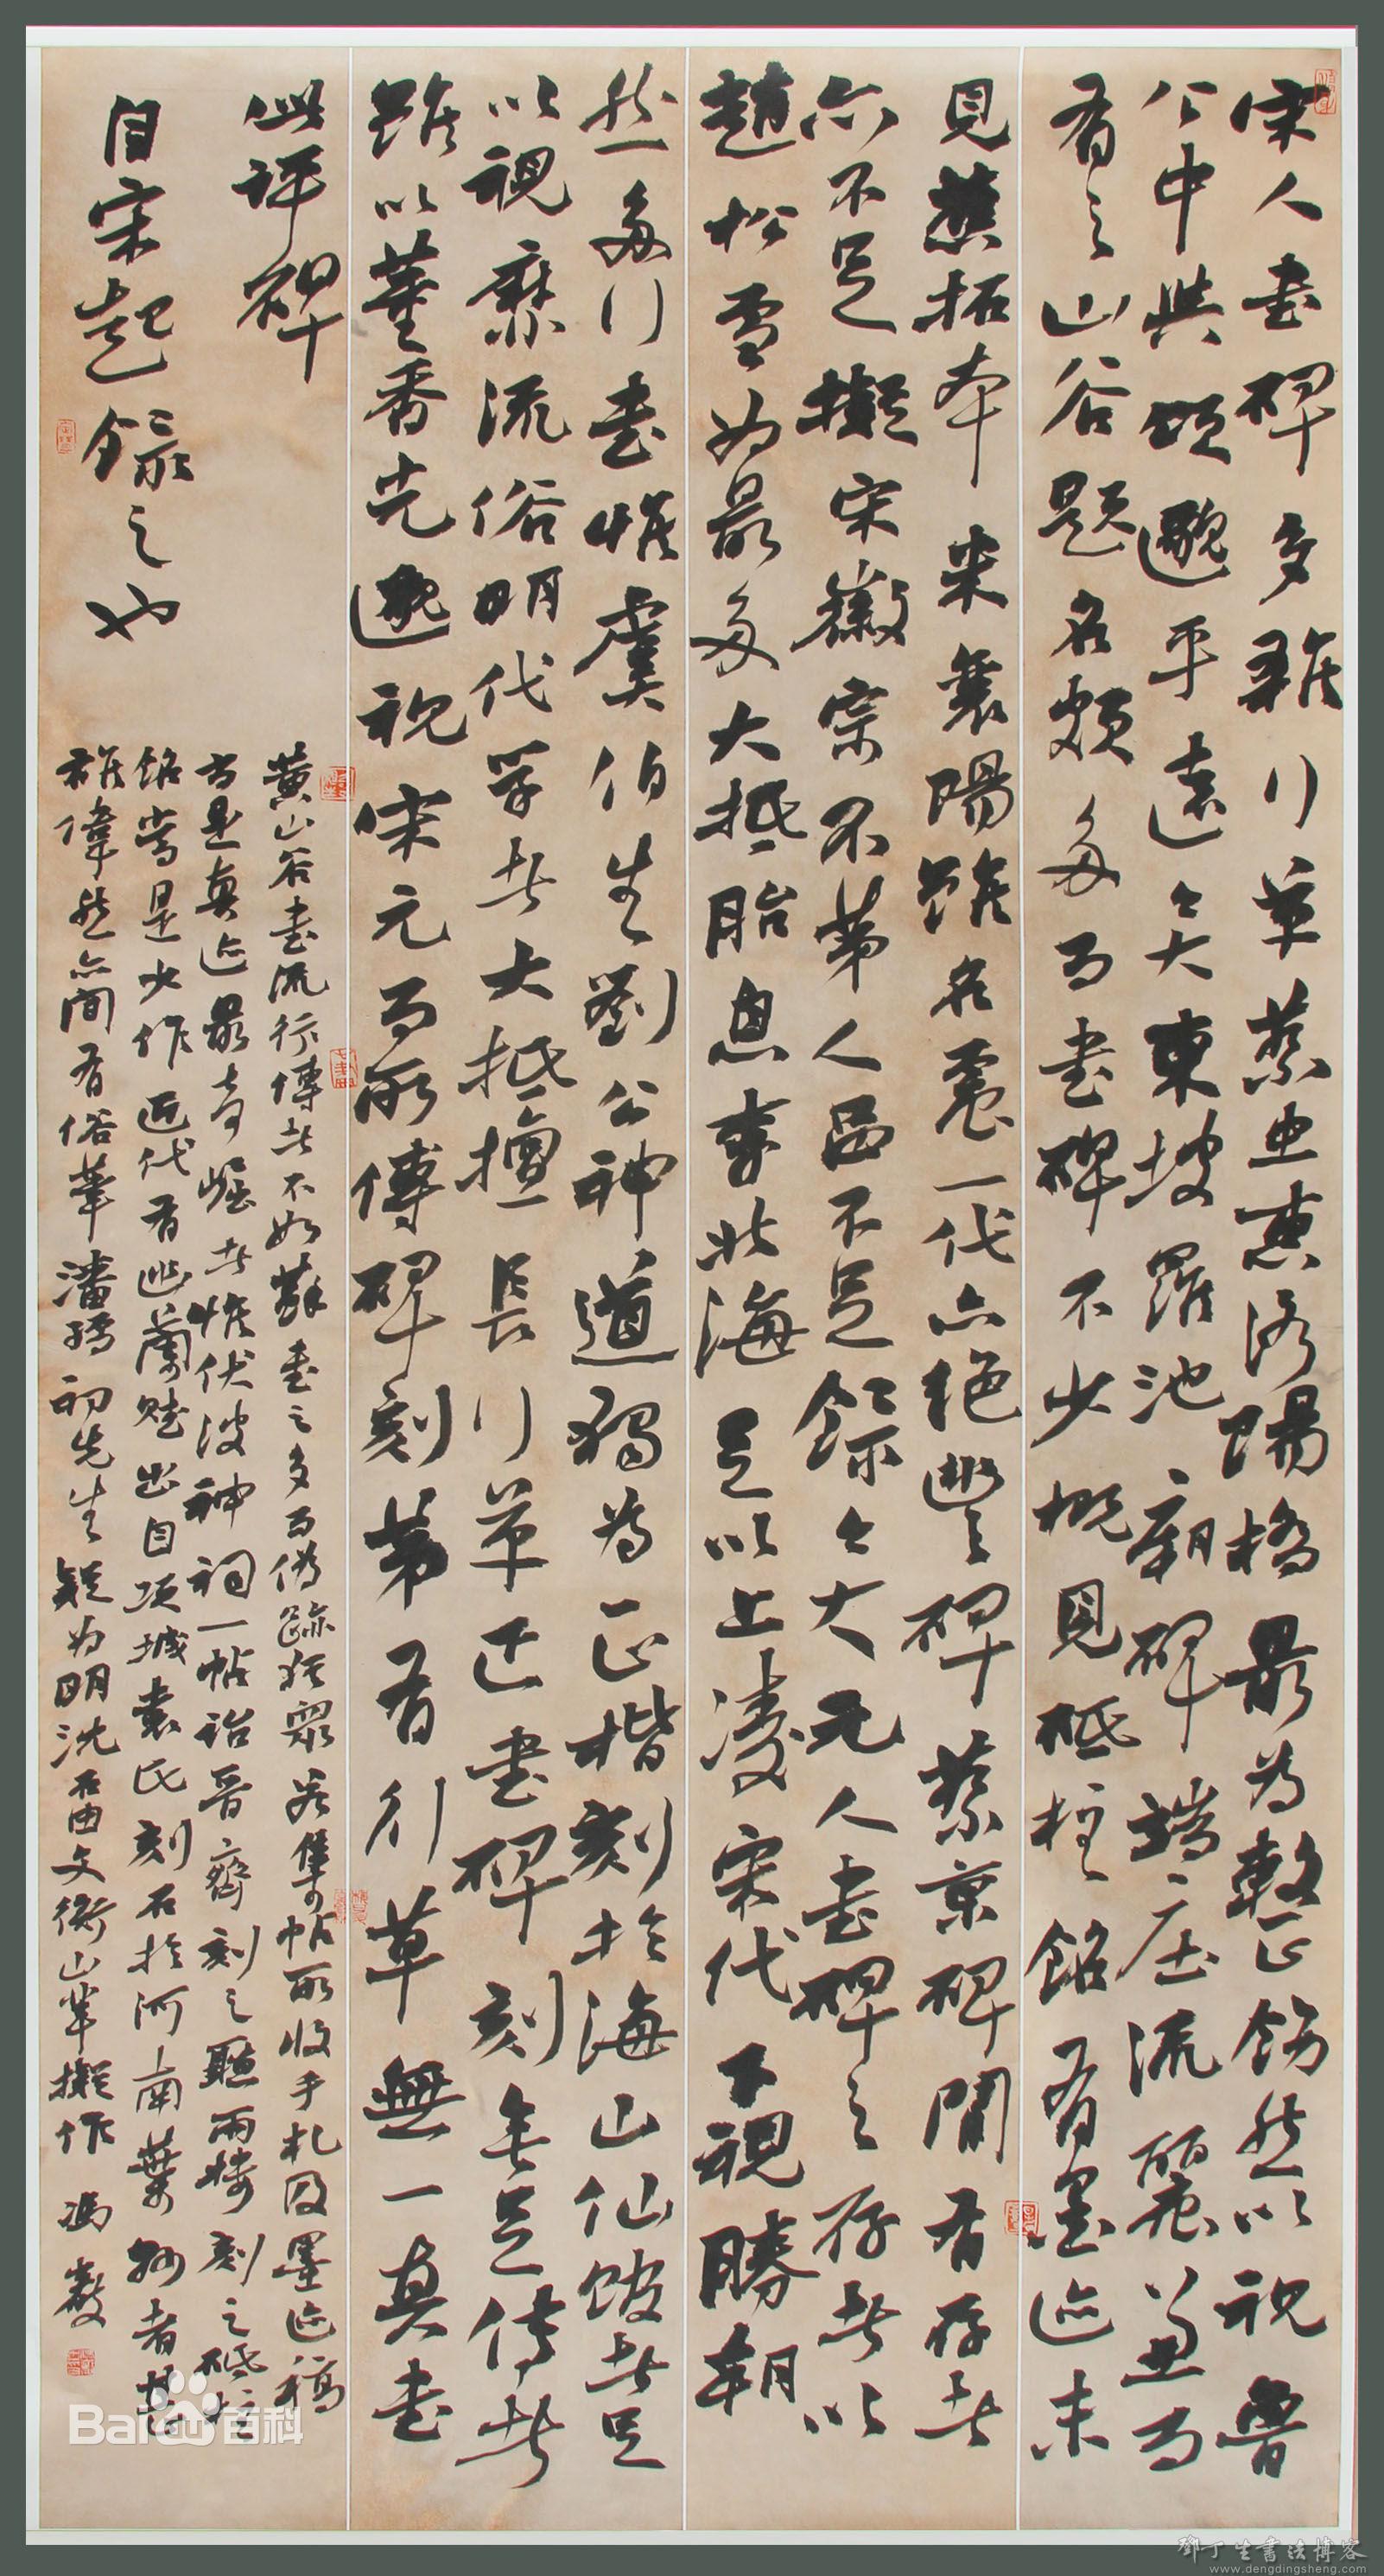 宋人書碑多雜行草蔡忠惠洛陽橋最為整正飭然以視魯
公中興頌邈乎遠矣東坡羅池廟碑端庄流麗兼而
有之山谷題名頗多而書碑不少概見砥柱銘有墨迹未
見舊拓本米襄陽雖名震一代亦絕豐碑蔡京碑間有存者
亦不足擬宋徽宗不第人品不足錄矣元人書碑之存者以
趙松雪為最多大抵胎息李北海足以上凌宋代下視勝朝
然多行書惟虞伯生劉公神道碣為正楷刻於海山仙館者足
以視糜流俗明代字者大抵擅長行草正書碑刻無足傳者
雖以董香光邈視宋元而所傳碑刻第有行草無一真書
此評碑
自宋起錄之也
黃山谷書流行傳者不如蘇書之多而偽跡狂眾若集帖所收手札及墨迹稿
方是真迹最奇崛者惟伏波神祠一帖詒晉齋刻之聽雨樓刻之砥柱
銘當是少作近代有幽蘭賦出自項城袁氏刻石於河南葉縣者甚
雄偉然亦間有俗筆潘孺初先生疑為明沈石田文衡山輩擬作 馮嚴
Bai百科
鄧丁生書法博客
www.dengdingsheng.com